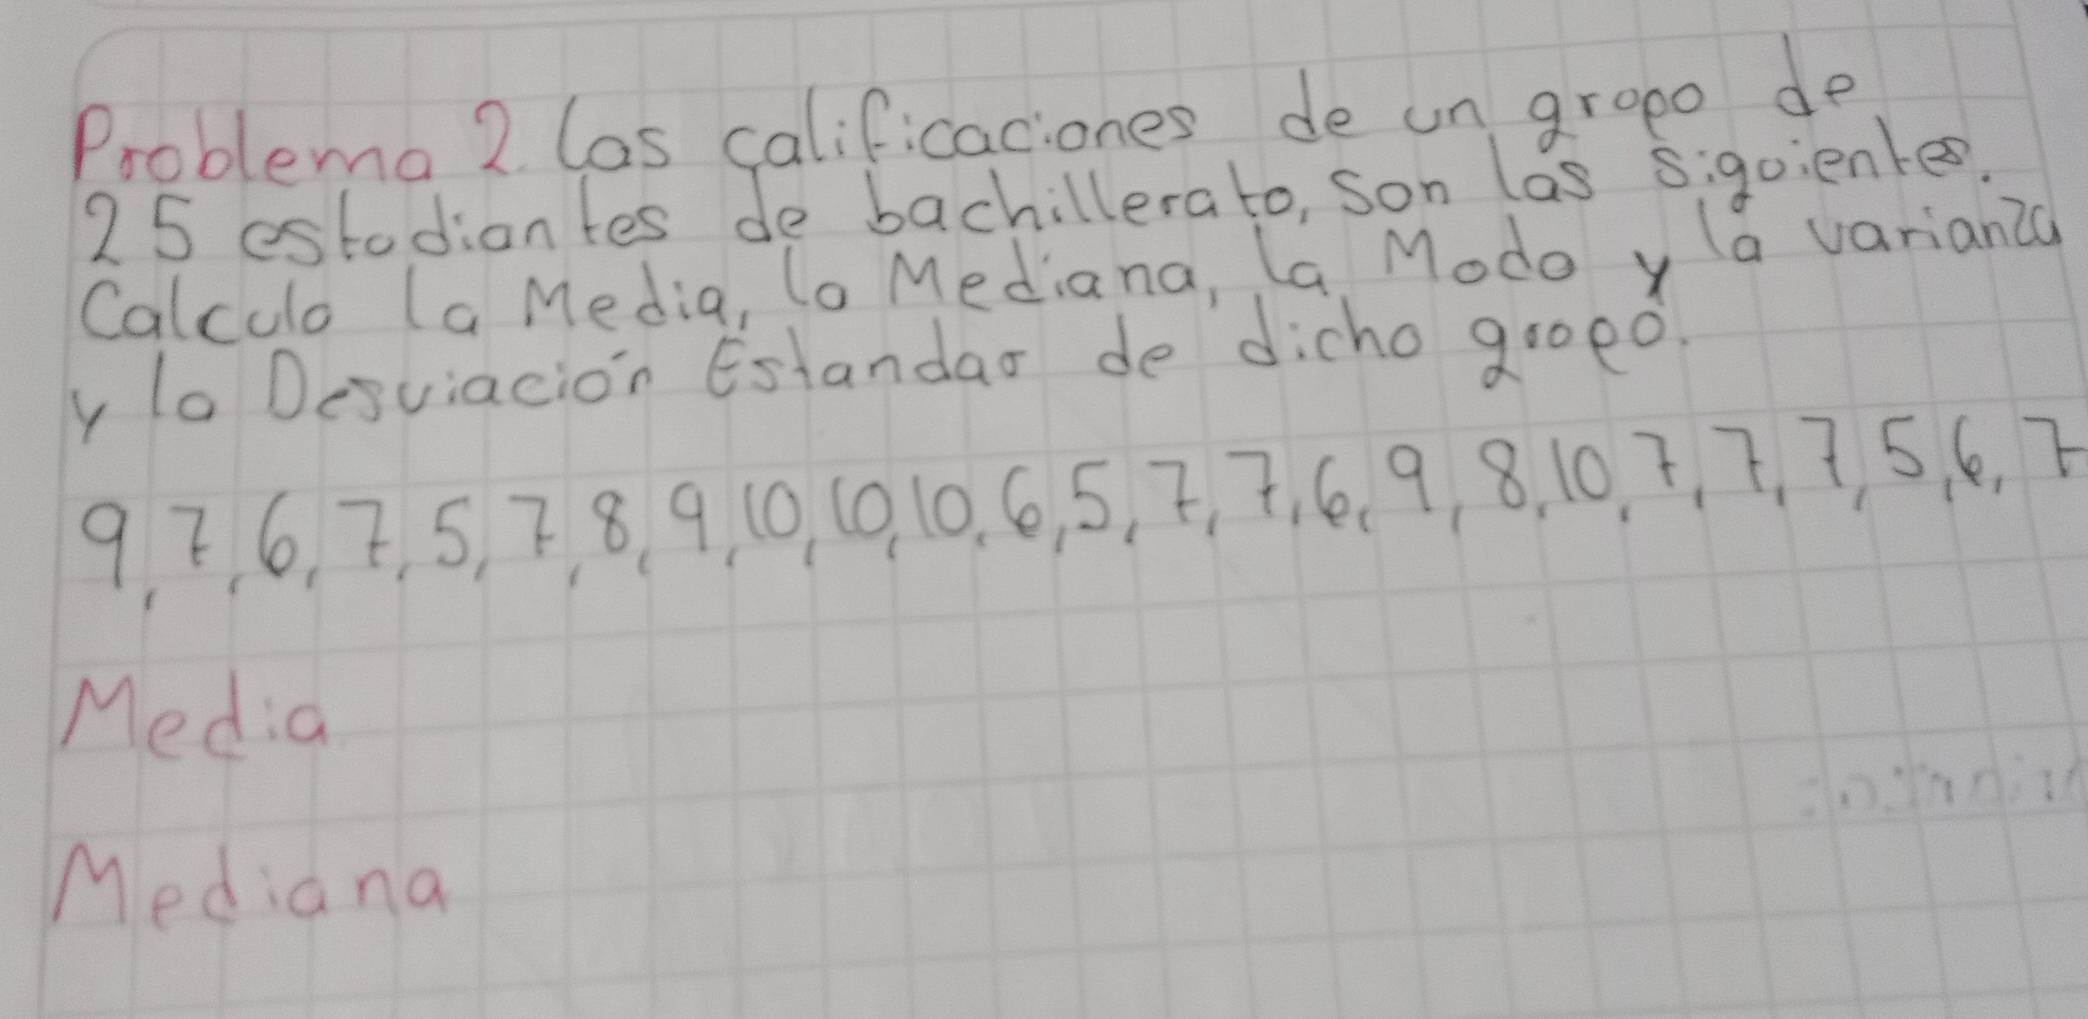 Problema 2. Las calificaciones de un grupo de
25 estudiantes de bachillerato, son las siguientes.
Calcula la Media, la Mediana, la Moda y la varianza
y la Desviación Estandar de dicho grupo.
9, 7, 6, 7, 5, 7, 8, 9, 10, 10, 10, 6, 5, 7, 7, 6, 9, 8, 10, 7, 7, 7, 5, 6, 7
Media
Mediana